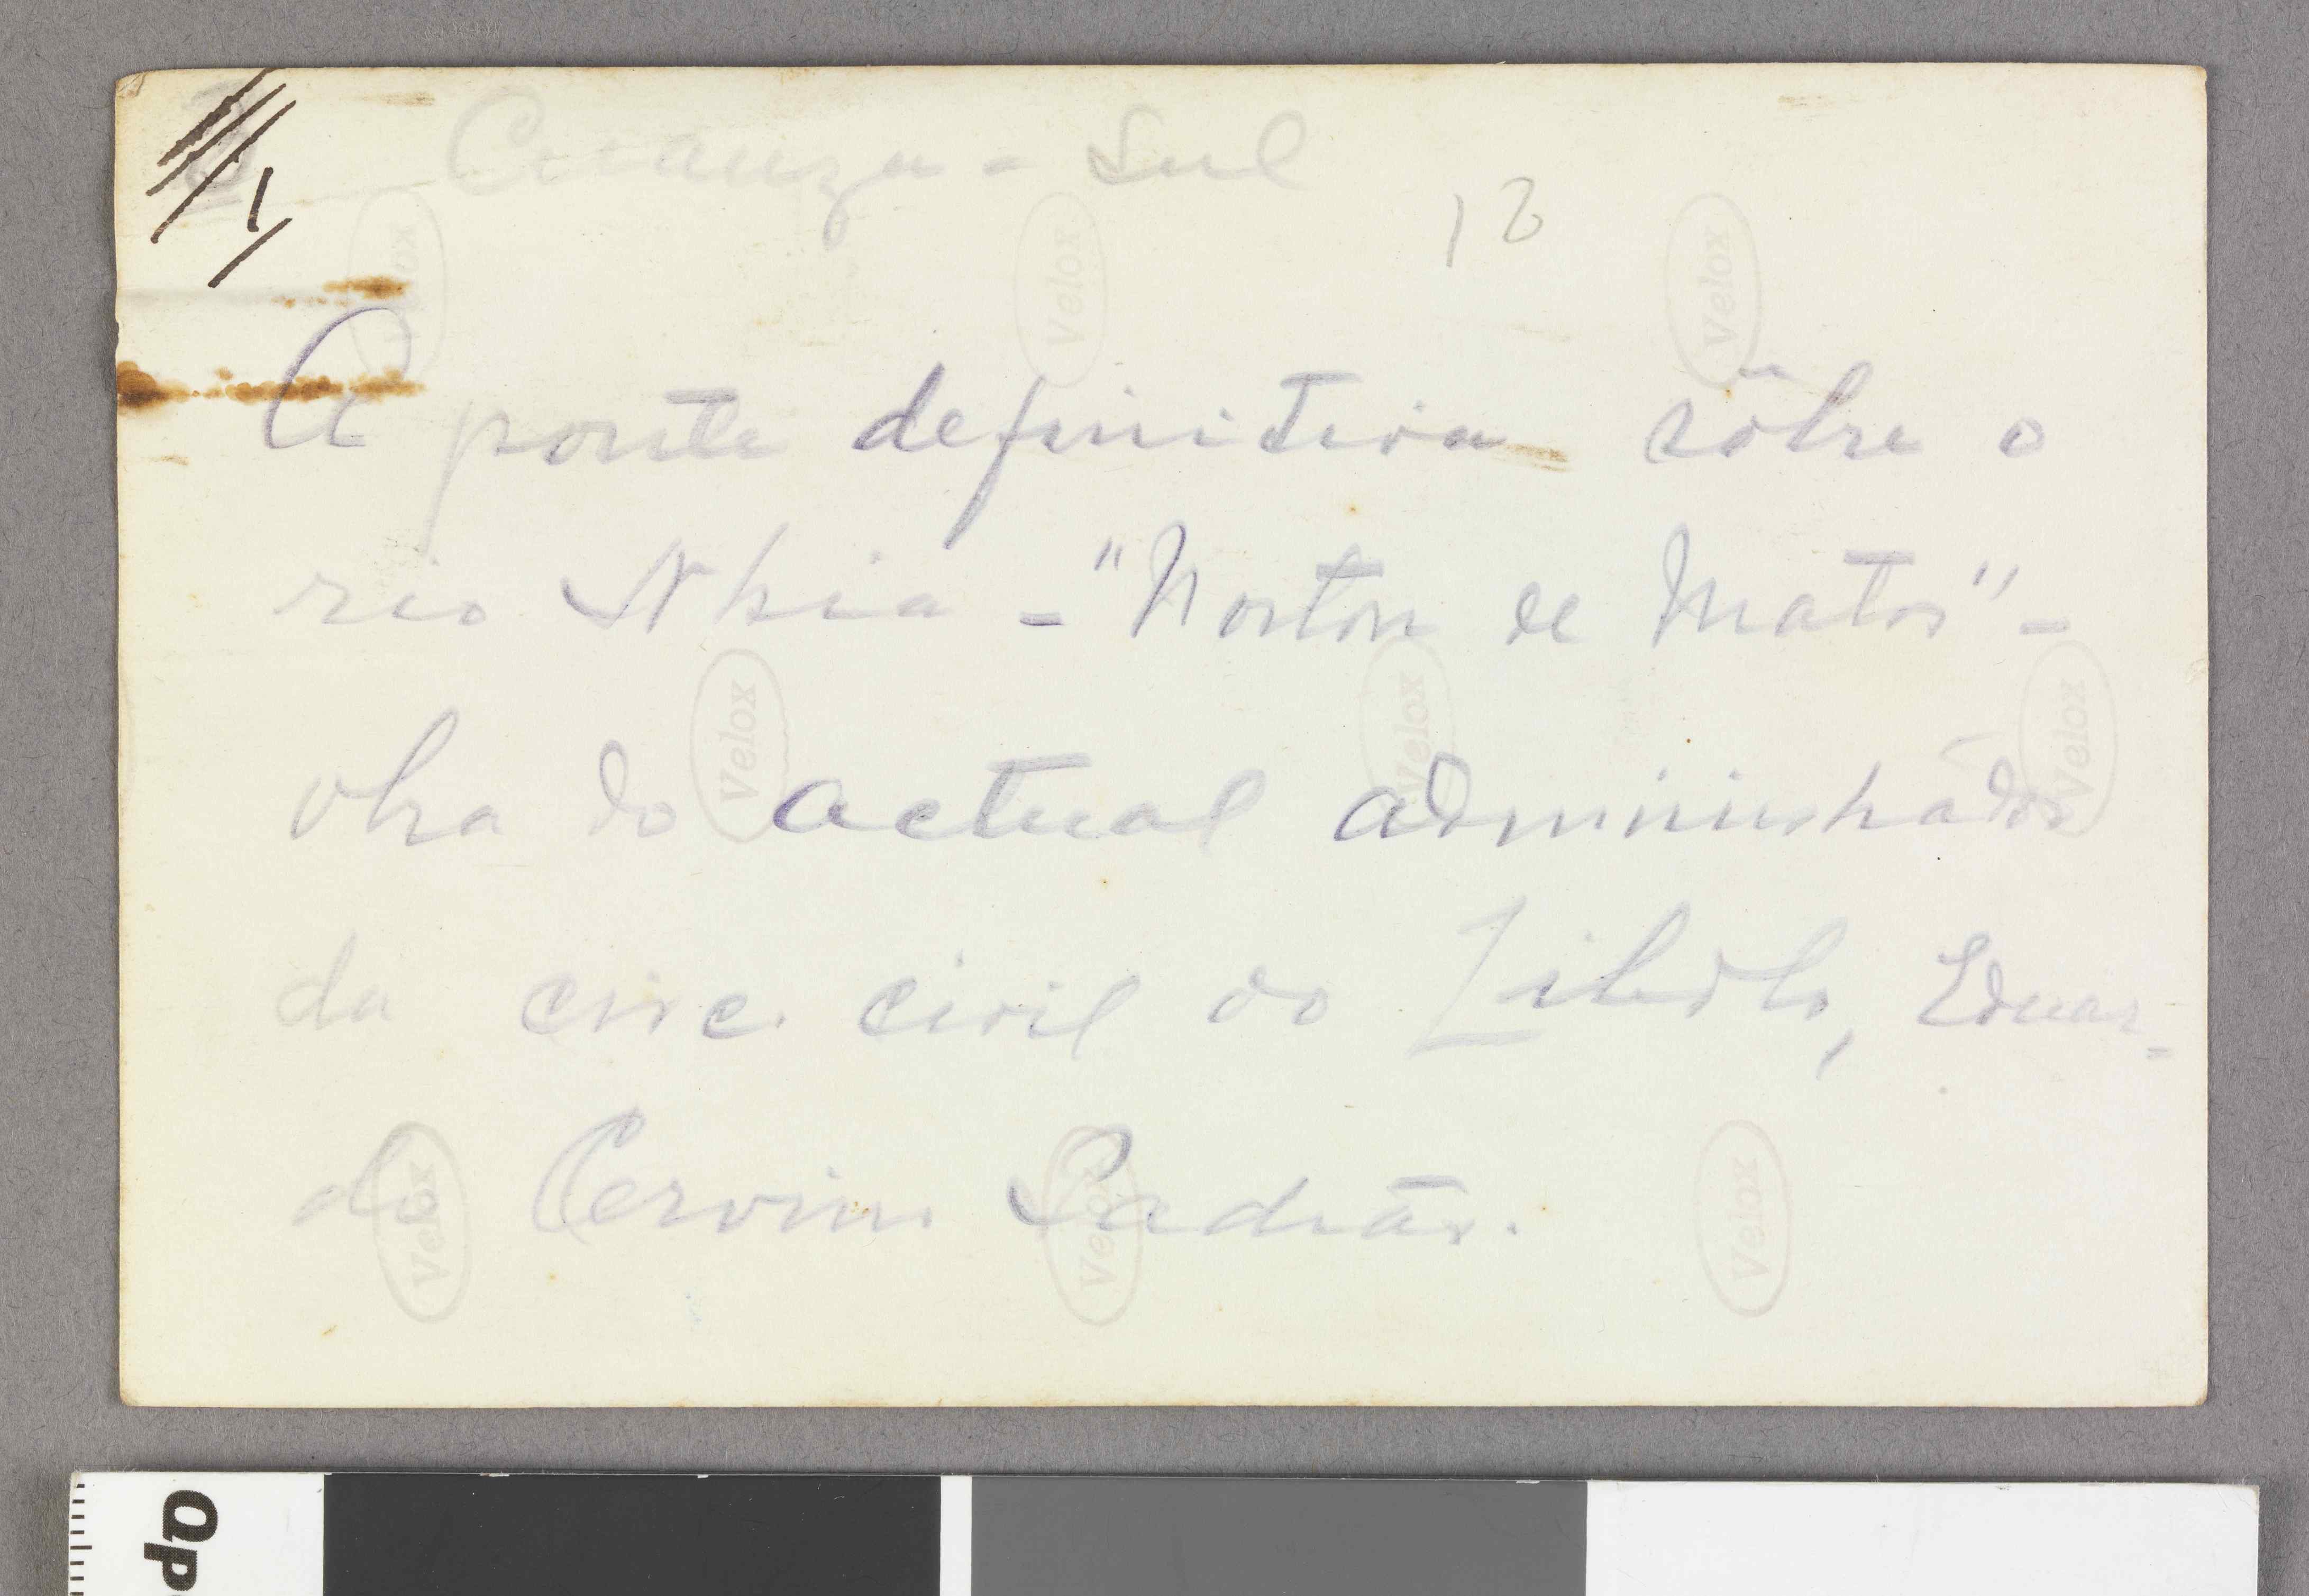 Cuanza - Sul
13
A ponte definitiva sôbre o
rio Nhia - "Norton de Matos" -
obra do actual administrador
da circ. civil do Libolo, Eduar-
do Cervim Padrão.
Velox
Velox
Velox
Velox
Velox
Velox
Velox
Velox
Velox
Op